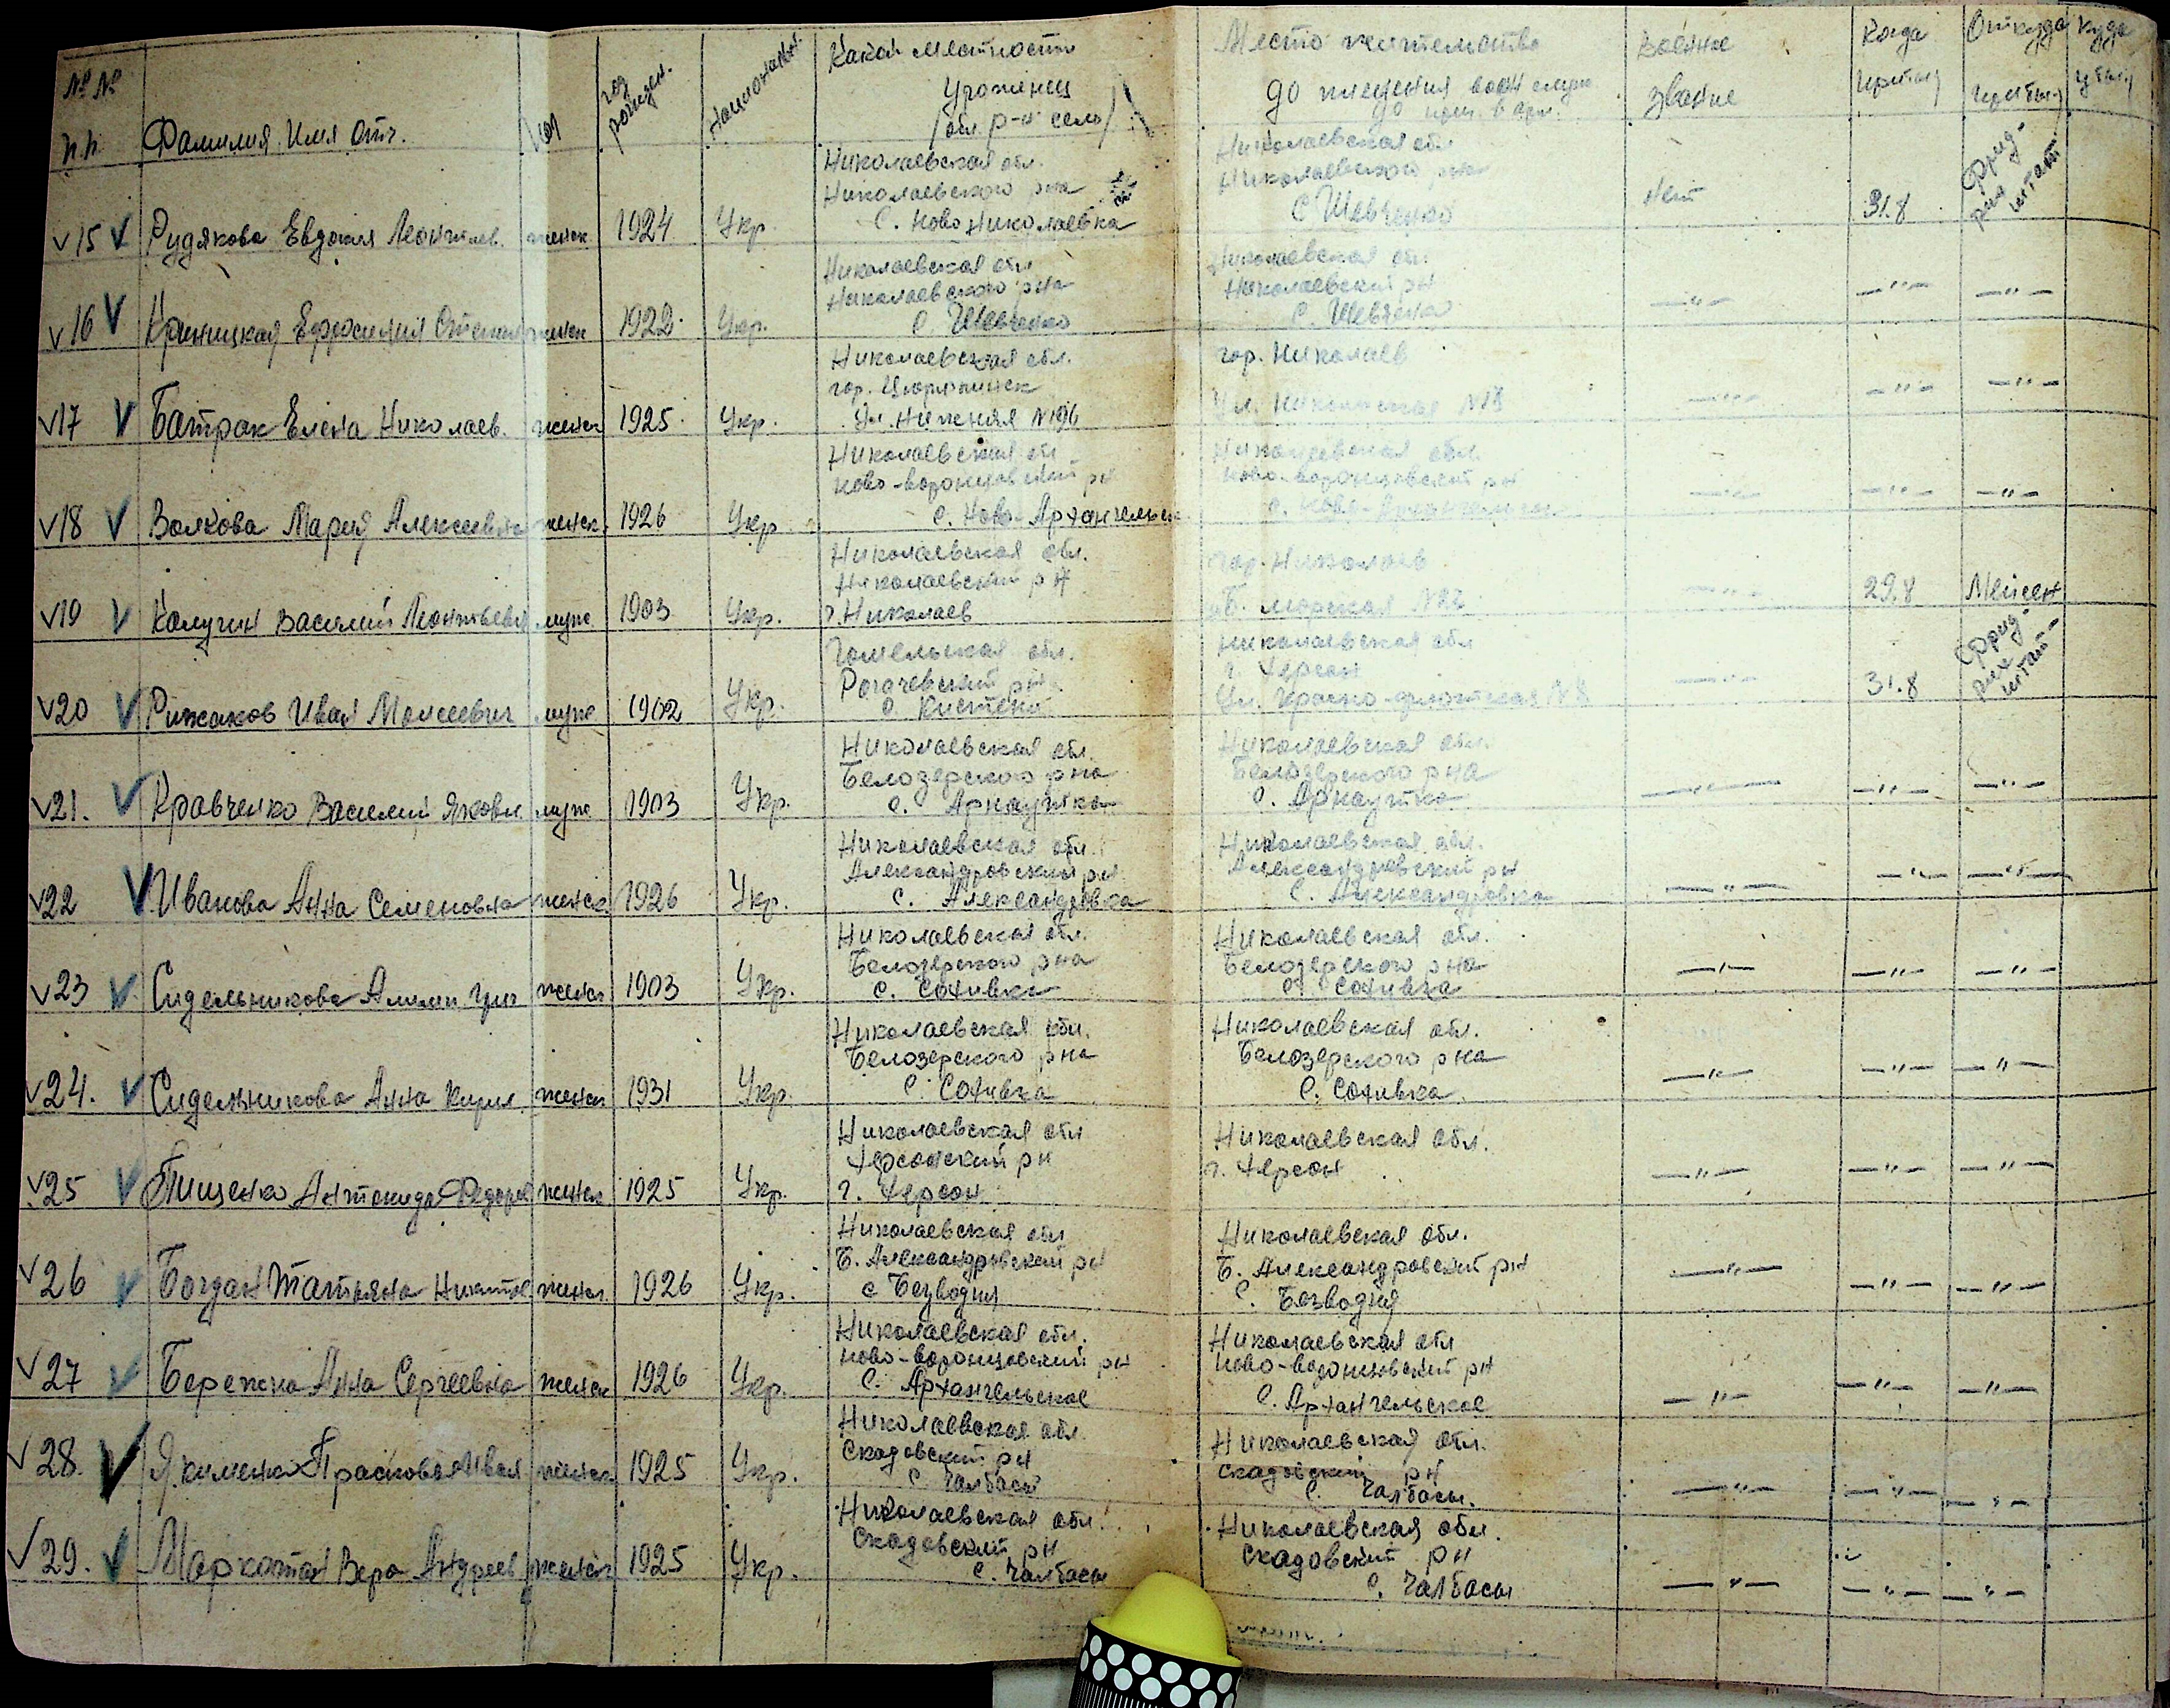 № № п.п. Фамилия Имя Отч. Пол год рожден. национальн. Какой местности Военное Когда Откуда Куда
Уроженец звание прибыл прибыл убыл
/обл. р-н село/
Место жительства
до пленения
Николаевская обл. Николаевская обл.
Николаевского р-на Николаевского р-на
15 Рудякова Евдокия женск. 1924 Укр. С. Ново Николаевка С Шевченко нет 31.8 Фрид-рих штат
Николаевская обл. Николаевская обл.
Николаевского р на Николаевский р н
16 Криницкая Ефросиния женск 1922 Укр. С. Шевченко С. Шевченко —"— —"— —"—
Николаевская обл. гор. Николаев
гор.
17 Батрак Елена Николаев. женск 1925 Укр. Ул. Нижняя №196 Ул. —"— —"— —"—
Николаевская обл Николаевская обл.
Ново-воронцовский рн Ново-воронцовский рн
18 Волкова Мария Алексеевна женск. 1926 Укр. С. Ново-Архангельск с. Ново- —"— —"— —"—
Николаевская обл. гор. Николаев
Николаевский р Н
19 Калугин Василий Леонтьевич муж. 1903 Укр. г. Николаев Б. Морская —"— 29.8 Мейсен
Гомельская обл. Николаевская обл
Рогачевский рн. г. Херсон
20 Рижаков Иван Моисеевич муж 1902 Укр. с. Кистени Ул. Красно-флотская №8 —"— 31.8 Фрид-рих штат-
Николаевская обл. Николаевская обл.
Белозерского р на Белозерского р на
21. Кравченко Василий Яковл. муж. 1903 Укр. с. Арнаутка с. Арнаутка —"— —"— —"—
Николаевская обл. Николаевская обл.
Александровский рн Александровский рн
22 Иванова Анна Семеновна женск. 1926 Укр. с. Александровка с. Александровка —"— —"— —"—
Николаевская обл. Николаевская обл.
Белозерского р на Белозерского р на
23 Сидельникова женск 1903 Укр. с. Сохивка с. Сохивка —"— —"— —"—
Николаевская обл. Николаевская обл.
Белозерского р на Белозерского р на
24. Сидельникова Анна Кирил. женск 1931 Укр. С. Сохивка С. Сохивка. —"— —"— —"—
Николаевская обл Николаевская обл.
Херсонский рн г. Херсон
25 Тищенко Федоров женск 1925 Укр. г. Херсон —"— —"— —"—
Николаевская обл Николаевская обл.
Б. Александровский рн Б. Александровский рн
26 Богдан Татьяна женск. 1926 Укр. с Безводня С. Безводня —"— —"— —"—
Николаевская обл. Николаевская обл
Ново-воронцовский рн Ново-воронцовский рн
27 Бережна Анна Сергеевна женск 1926 Укр. С. Архангельское С. Архангельское —"— —"— —"—
Николаевская обл. Николаевская обл.
Скадовский рн Скадовский рн
28. Якименко Прасковья Иван женск 1925 Укр. С. Чалбасы С. Чалбасы. —"— —"— —"—
Николаевская обл. Николаевская обл.
Скадовский рн Скадовский рн
29. Маркотан Вера Андреев женск 1925 Укр. С. Чалбасы С. Чалбасы —"— —"— —"—